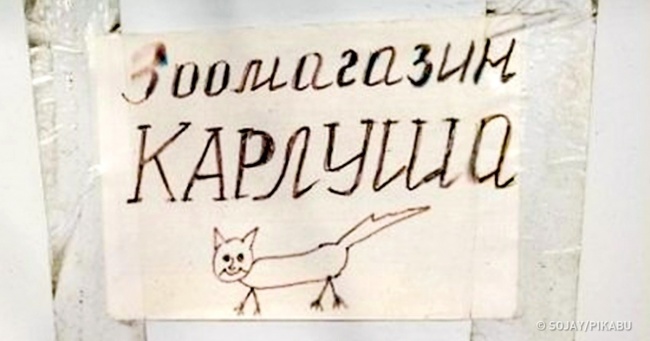 Зоомагазин
КАРЛУША
© SOJAY/PIKABU